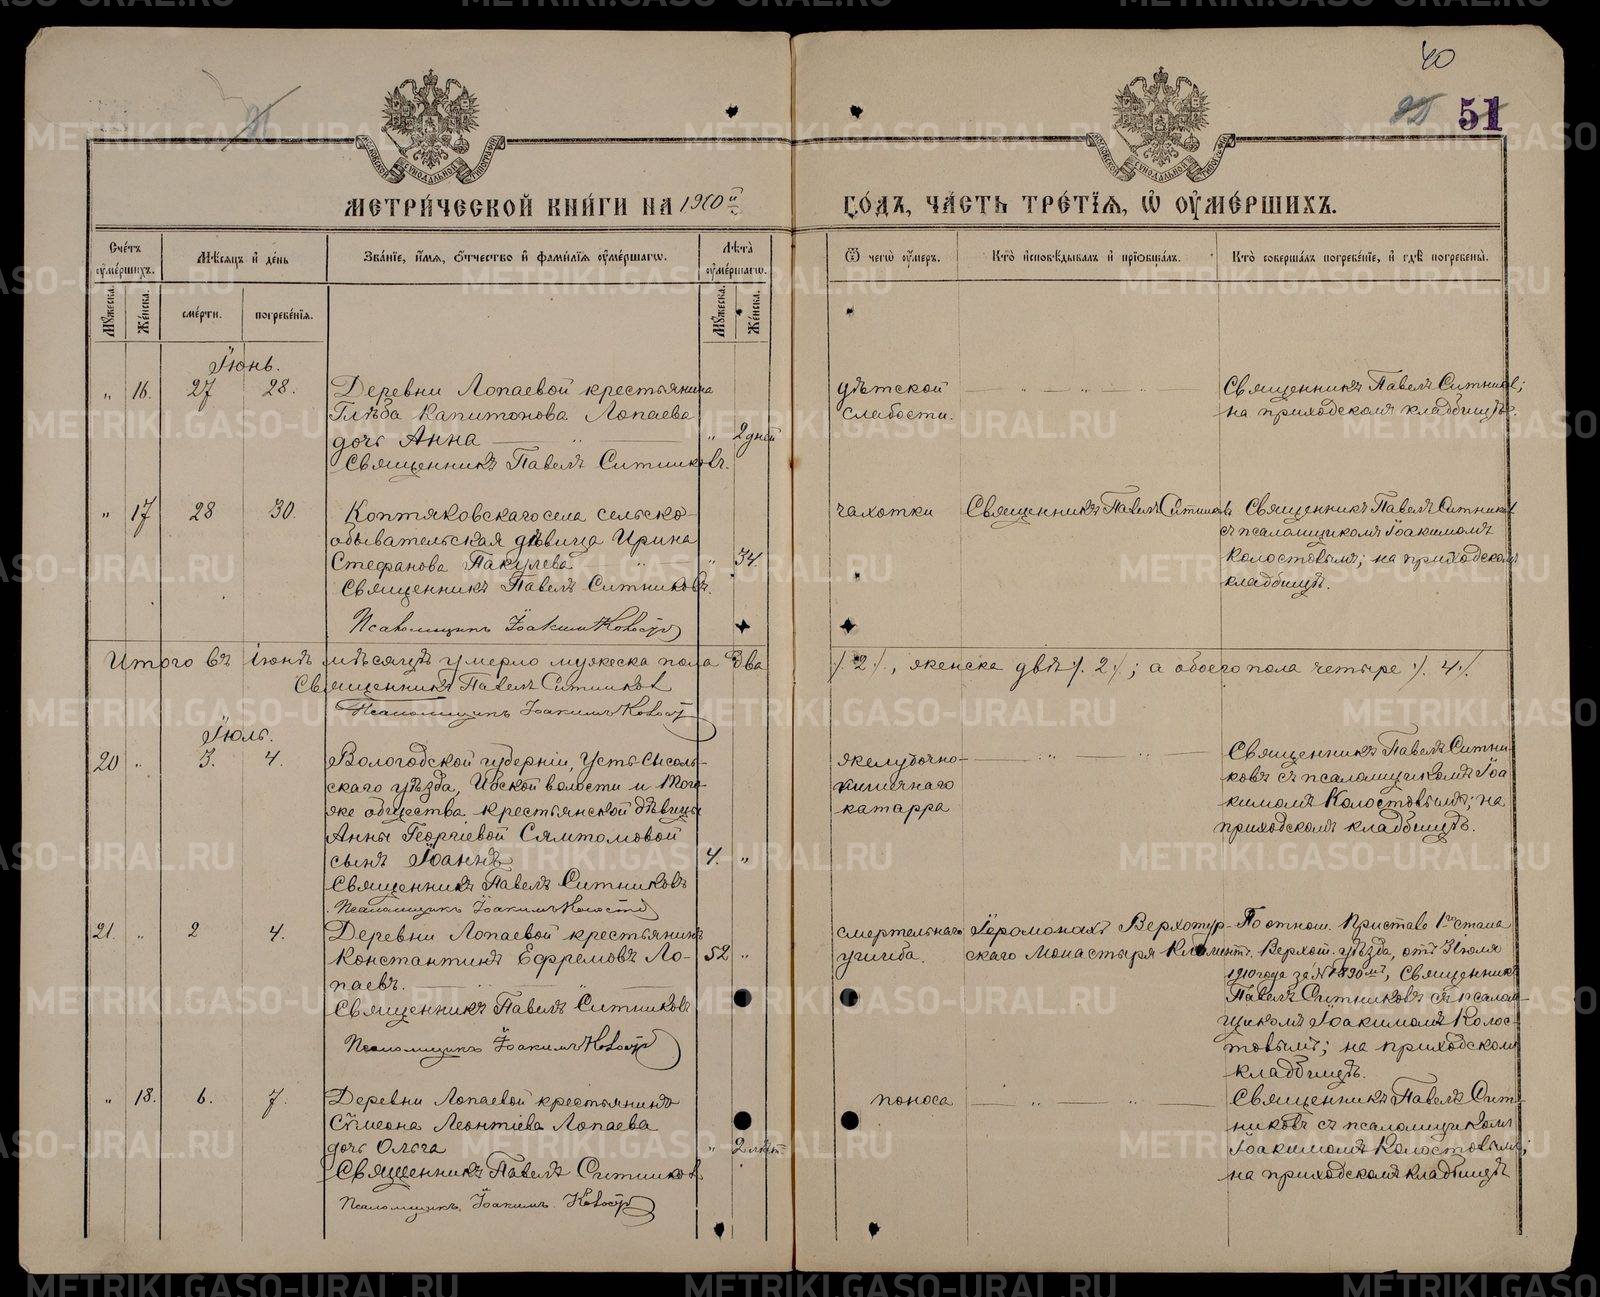 40
51
МОСКОВСКОЙ СѴНОДАЛЬНОЙ ТИПОГРАФІИ
МЕТРИ́ЧЕСКОЙ КНИ́ГИ НА 1910й
ГО́ДЪ, ЧА́СТЬ ТРЕ́ТІѦ, Ѡ҆ ОУ҆МЕ́РШИХЪ.
Сче́тъ оу҆ме́ршихъ.
Мѣ́сяцъ и҆ де́нь
Зва́нїе, и҆́мѧ, о҆́тчество и҆ фами́лїѧ оу҆ме́ршагѡ.
Лѣ́та оу҆ме́ршагѡ.
Ѿ чегѡ̀ оу҆́меръ.
Кто̀ и҆сповѣ́дывалъ и҆ прїѡбща́лъ.
Кто̀ соверша́лъ погребе́нїе, и҆ гдѣ̀ погребены̀.
Мꙋ́жеска.
Же́нска.
сме́рти.
погребе́нїѧ.
Мꙋ́жеска.
Же́нска.
Іюнь.
„ 16. 27 28. Деревни Лопаевой крестьянина
Глѣба Капитонова Лопаева
дочь Анна „ 2 дней
Священникъ Павелъ Ситниковъ.
дѣтской
слабости.
Священникъ Павелъ Ситников;
на приходскомъ кладбищѣ.
„ 17 28 30. Коптяковскаго села сельско-
обывательская дѣвица Ирина
Стефанова Пакулева „ 34.
Священникъ Павелъ Ситниковъ.
Псаломщикъ Іоакимъ Колост
чахотки
Священникъ Павелъ Ситниковъ
Священникъ Павелъ Ситников
съ псаломщикомъ Іоакимомъ
Колостовымъ; на приходскомъ
кладбищѣ.
Итого въ іюнѣ мѣсяцѣ умерло мужеска пола два ./. 2 ./., женска двѣ ./. 2 ./.; а обоего пола четыре ./. 4 ./.
Священникъ Павелъ Ситников
Псаломщикъ Іоакимъ Колост
Іюль.
20 „ 3. 4. Вологодской губерніи, Усть Сысоль-
скаго уѣзда, Ибской волости и того-
же общества крестьянской дѣвицы
Анны Георгіевой Сямтомовой
сынъ Іоаннъ 4. „
Священникъ Павелъ Ситниковъ
Псаломщикъ Іоакимъ Колост
желудочно-
кишечнаго
катарра
Священникъ Павелъ Ситни-
ковъ съ псаломщикомъ Іоа
кимомъ Колостовымъ; на
приходскомъ кладбищѣ.
21. „ 2 4. Деревни Лопаевой крестьянинъ
Константинъ Ефремовъ Ло- 52 „
паевъ.
Священникъ Павелъ Ситниковъ
Псаломщикъ Іоакимъ Колост
смертельнаго
ушиба.
Іеромонахъ Верхотур-
скаго монастыря Климентъ
По отнош. Пристава 1го стана
Верхот. уѣзда, отъ 3 Іюля
1910 года за № 1890мъ, Священникъ
Павелъ Ситниковъ съ псалом-
щикомъ Іоакимомъ Колос-
товымъ; на приходском
кладбищѣ.
„ 18. 6. 7. Деревни Лопаевой крестьянинъ
Сѵмеона Леонтіева Лопаева
дочь Ольга „ 2 лѣт
Священникъ Павелъ Ситников
Псаломщикъ Іоакимъ Колост
поноса
Священникъ Павелъ Сит-
никовъ съ псаломщикомъ
Іоакимомъ Колостовымъ;
на приходскомъ кладбищѣ
METRIKI.GASO-URAL.RU